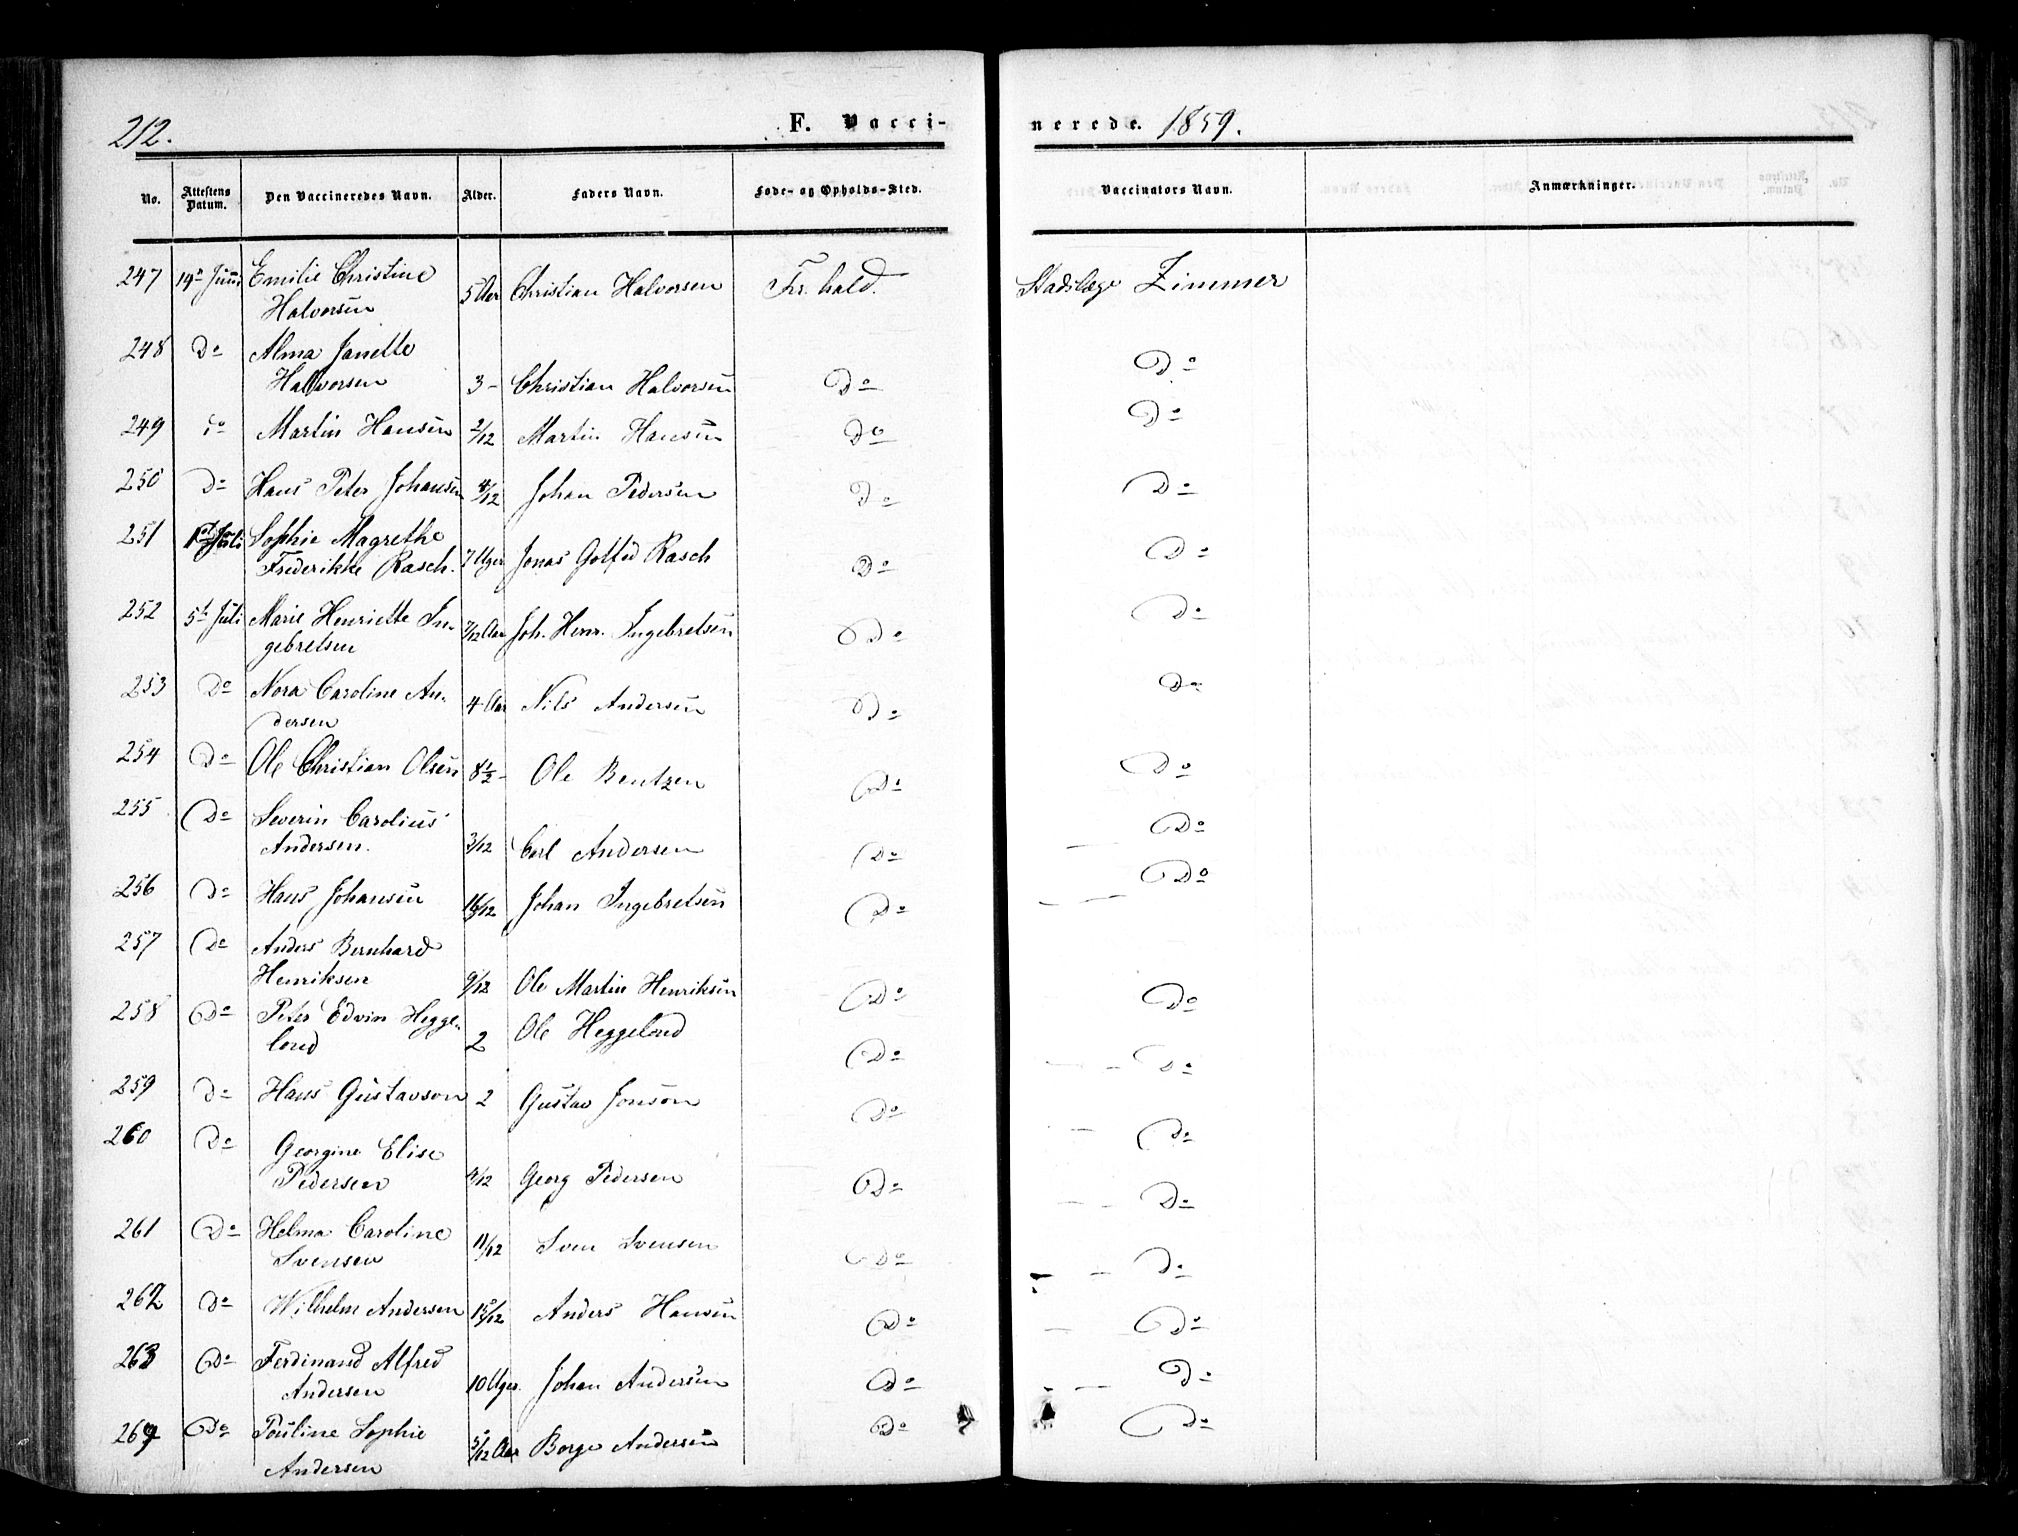 212.
F. Vacci-
nerede. 1859.
No. Attestens Datum. Den Vaccineredes Navn. Alder. Faders Navn. Føde- og Opholds-Sted. Vaccinators Navn. Anmærkninger.
247 19n Juni Emilie Christine
Halvorsen 5 Aar Christian Halvorsen Fr.hald. Stadslæge Zimmer
248 Do Alma Janette
Halvorsen 3 - Christian Halvorsen Do Do
249 do Martin Hansen 2/12 Martin Hansen Do Do
250 Do Hans Peter Johansen 4/12 Johan Pedersen Do Do
251 Juli Sophie Magrethe
Frederikke Rasch. 7 Uger Jonas Gotfrid Rasch Do Do
252 5t Juli Marie Henriette In-
gebretsen 7/12 Aar Joh. Henr. Ingebretsen Do Do
253 Do Nora Caroline An-
dersen 4 Aar Nils Andersen Do Do
254 Do Ole Christian Olsen 8 1/2 - Ole Bentzen Do Do
255 Do Severin Carolius
Andersen. 3/12 Carl Andersen Do Do
256 Do Hans Johansen Johan Ingebretsen Do Do
257 Do Anders Bernhard
Henriksen 9/12 Ole Martin Henriksen Do Do
258 Do Peter Edvin Hegge-
lond 2 Ole Heggelond Do Do
259 Do Hans Gustavson 2 Gustav Jonson Do Do
260 Do Georgine Elise
Pedersen 4/12 Georg Pedersen Do Do
261 Do Helma Caroline
Svensen 11/12 Sven Svensen Do Do
262 Do Wilhelm Andersen Anders Hansen Do Do
263 Do Ferdinand Alfred
Andersen 10 Uger. Johan Andersen Do Do
264 Do Pouline Sophie
Andersen 5/12 Aar Borge Andersen Do Do